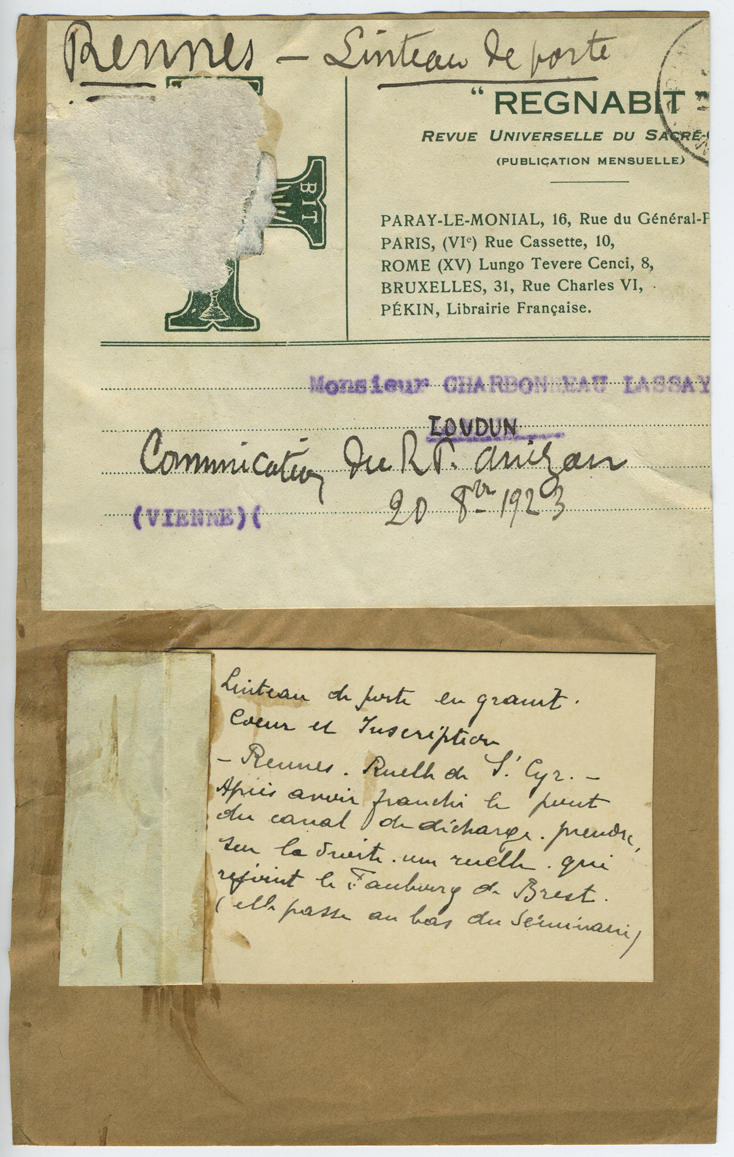 Rennes – Linteau de porte
BIT
" REGNABIT "
REVUE UNIVERSELLE DU SACRÉ-
(PUBLICATION MENSUELLE)
PARAY-LE-MONIAL, 16, Rue du Général-
PARIS, (VIe) Rue Cassette, 10,
ROME (XV) Lungo Tevere Cenci, 8,
BRUXELLES, 31, Rue Charles VI,
PÉKIN, Librairie Française.
Monsieur CHARBONNEAU LASSAY
LOUDUN
Communication du R.P. Anizan
20 8bre 1923
(VIENNE)(
Linteau de porte en granit.
Coeur et Inscription
– Rennes. Ruelle de St Cyr. –
Après avoir franchi le pont
du canal de décharge. prendre,
sur la droite. une ruelle. qui
rejoint le Faubourg de Brest.
(elle passe au bas du Séminaire)